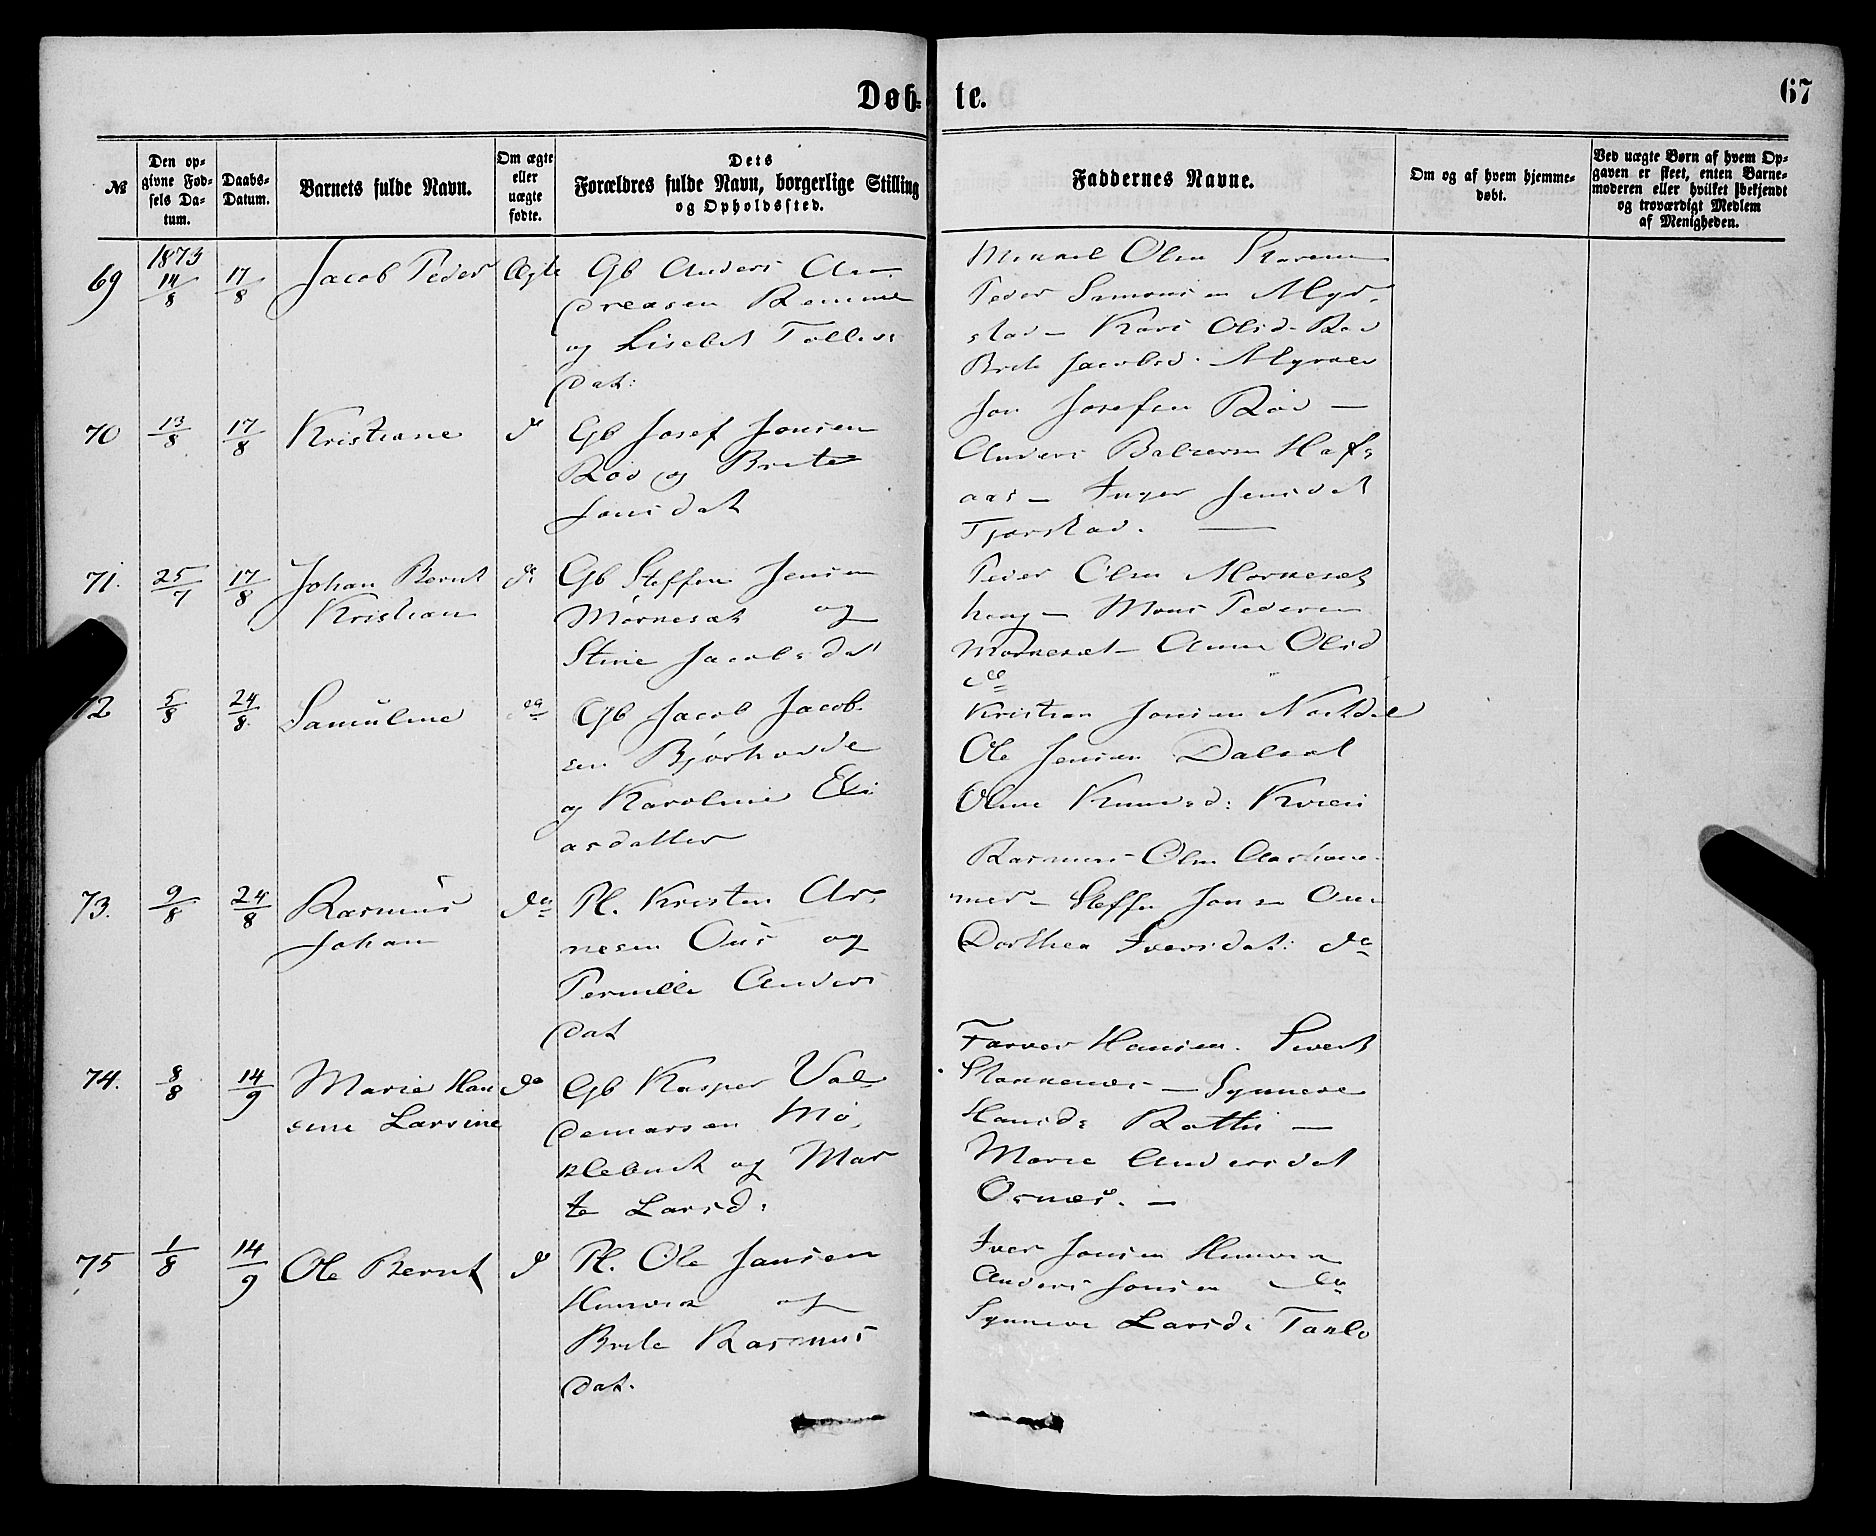 Døb-te.
67
№
Den op-
givne Fød-
sels Da-
tum.
Daabs-
Datum.
Barnets fulde Navn.
Om ægte
eller
uægte
fødte.
Dets
Forældres fulde Navn, borgerlige Stilling
og Opholdssted.
Faddernes Navne.
Om og af hvem hjemme-
døbt.
Ved uægte Børn af hvem Op-
gaven er skeet, enten Barne-
moderen eller hvilket bekjendt
og troværdigt Medlem
af Menigheden.
1873
69 14/8 17/8 Jacob Peder Ægte
Gb Anders An-
dreasen Remme
og Lisebet Tollevs
dat:
Mikael Olsn
Peder Simonsen Myr-
stad - Kari Olsd.
Brite Jacobsd.
70 13/8 17/8 Kristiane do
Gb Josef Jonsen
Röd og Brite
Jonsdat
Jon Josefsen Röd -
Anders Balzersn Haf-
aas - Inger Jensdat
Tjorstad.
71. 25/7 17/8 Johan Bernt
Kristian
do
Gb Steffen Jensen
Mørkesæt og
Stine Jacobsdat
Peder Olsn Morkesæt
haug - Mons Pedersen
Mørkesæt - Anne Olsd
do
72 5/8 24/8 Samuline do
Gb Jacob Jacob-
sen Bjørhovde
og Karoline Eli-
asdatter
Kristian Jonsen Nochdal
Ole Jensen Dalsæt
Oline Knudsd:
73. 9/8 24/8 Rasmus
Johan
do
Pl. Kristen Ar-
nesen Øus og
Pernille Anders
dat
Rasmus Olsn
mer - Steffen Jonsen
Dorthea Iversdat: do
74. 8/8 14/9 Marie Han
sine Larsine
do
Gb Kasper Val-
demarsen Mø-
klebust og Mar
te Larsd:
Farver Hansen. Sivert
Stokkenæs - Synneve
Hansd:
Marie Andersdat
Osnæs. -
75 1/8 14/9 Ole Bernt do
Pl. Ole Jansen
Hunvik og
Brite Rasmus
dat.
Iver Jonsen Hunvik
Anders Jonsen do
Synneve Larsd: